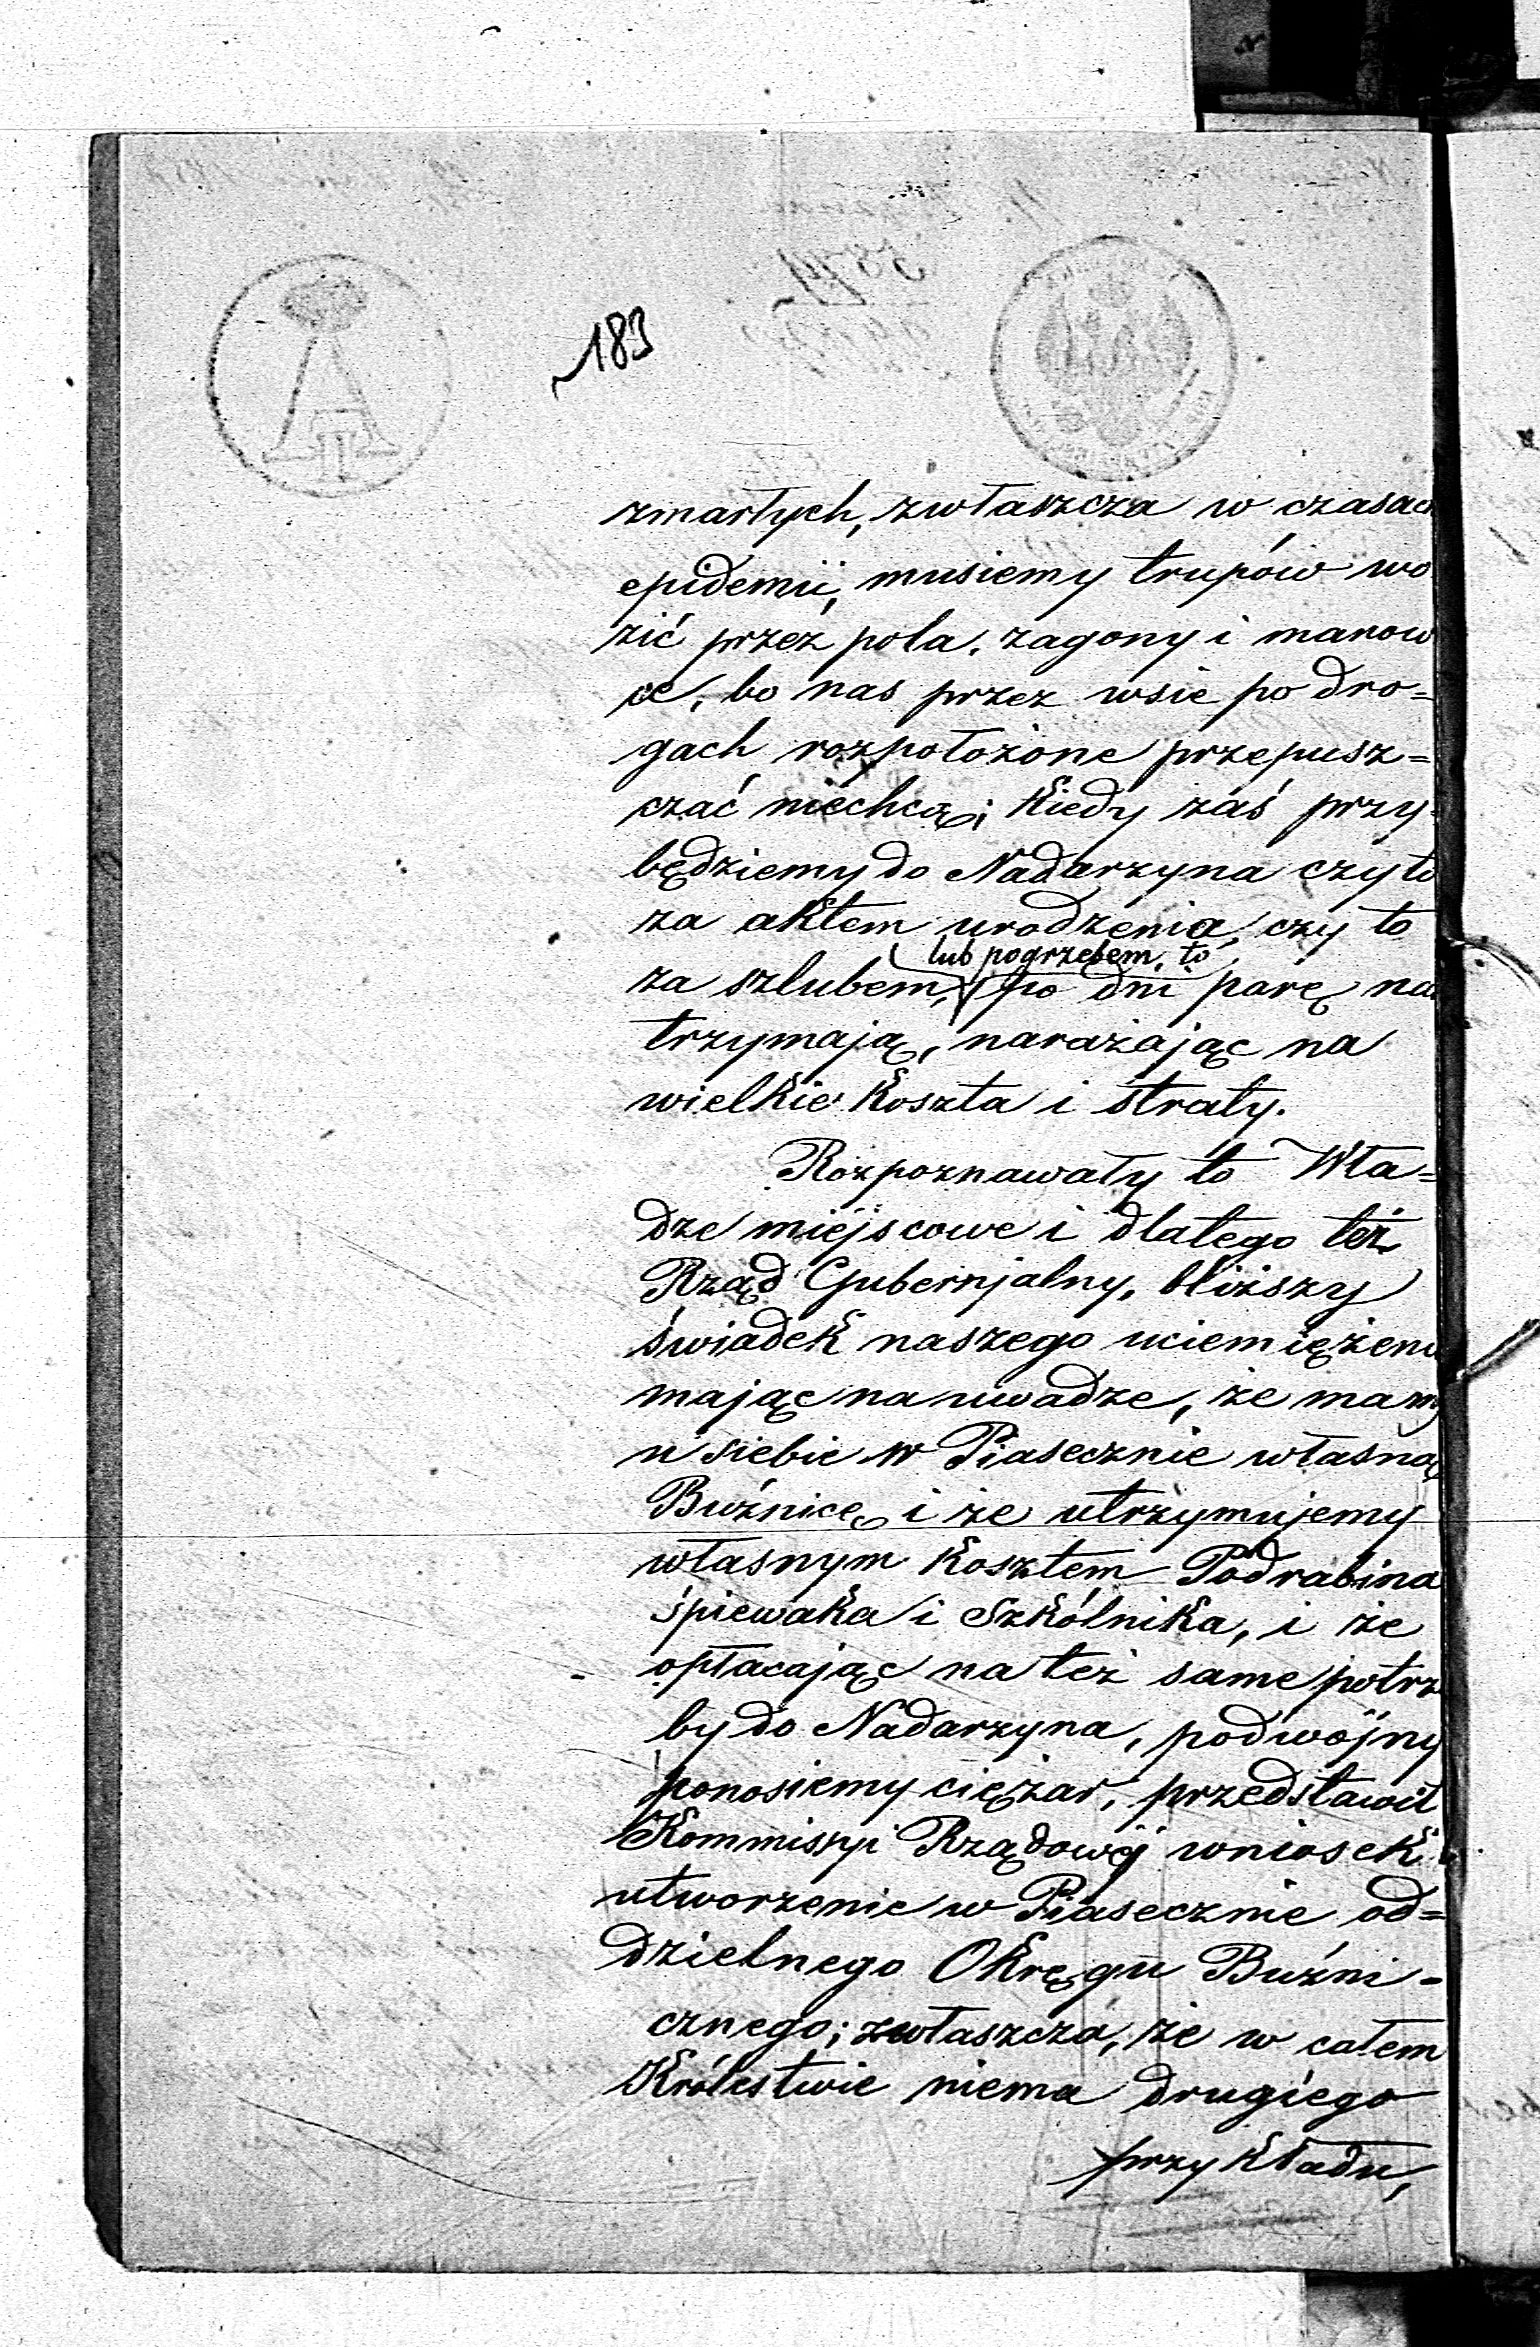 183
zmarłych, zwłaszcza w czasach
epidemii, musiemy trupów wo
zić przez pola, zagony i manow
ce, bo nas przez wsie po dro=
gach rozpołożone przepusz=
czać niechcą; Kiedy zaś przy=
będziemy do Nadarzyna czyto
za aktem urodzenia, czy to
lub pogrzebem, to
za szlubem, po dni parę na
trzymają, narażając na
wielkie Koszta i straty.
Rozpoznawały to Wła=
dze miéjscowe i dlatego też
Rząd Gubernjalny, bliższy
świadek naszego uciemiężeni
mając na uwadze, że mamy
u siebie w Piasecznie własną
Buźnicę i że utrzymujemy
własnym Kosztem Podrabina
śpiewaka i Szkólnika, i że
opłacając na też same potrz
by do Nadarzyna, podwójny
ponosiemy ciężar, przedstawił
Kommissyi Rządowéj wniosek
utworzenie w Piasecznie od=
dzielnego Okręgu Buźni=
cznego; zwłaszcza, że w całem
Królestwie niema drugiego
przykładu,